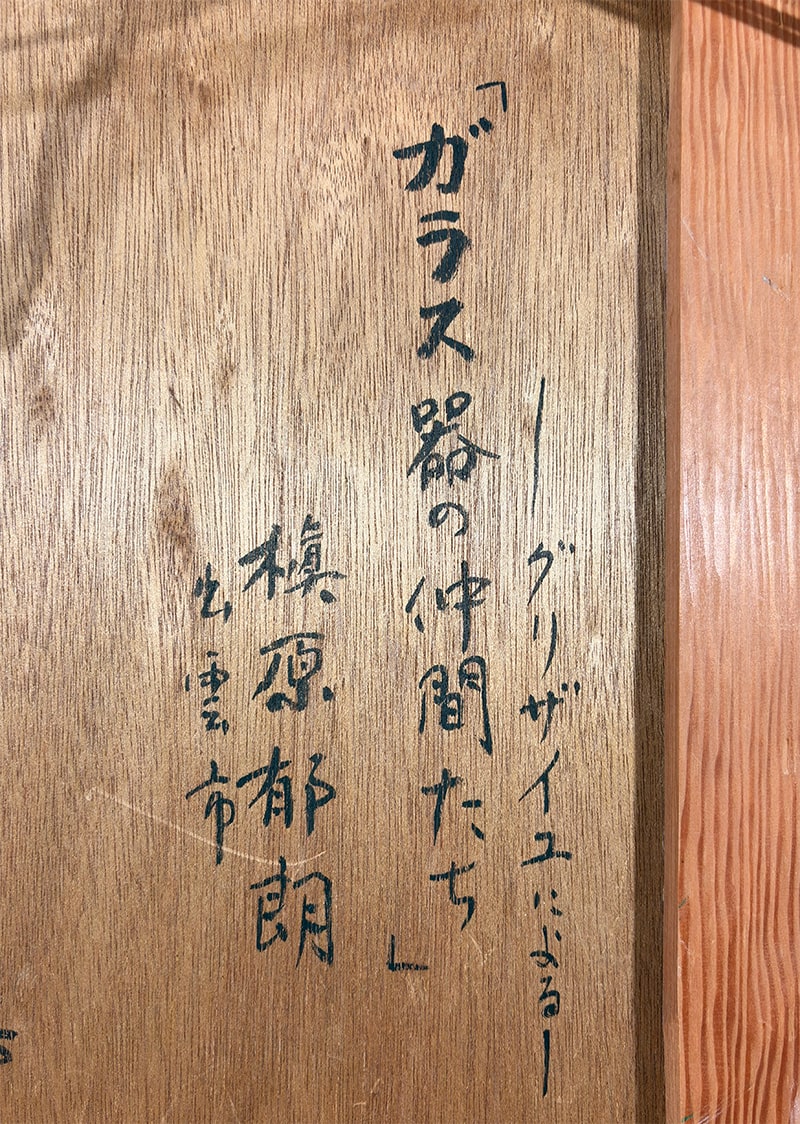 ―グリザイユによる―
「ガラス器の仲間たち」
槇原郁朗
出雲市